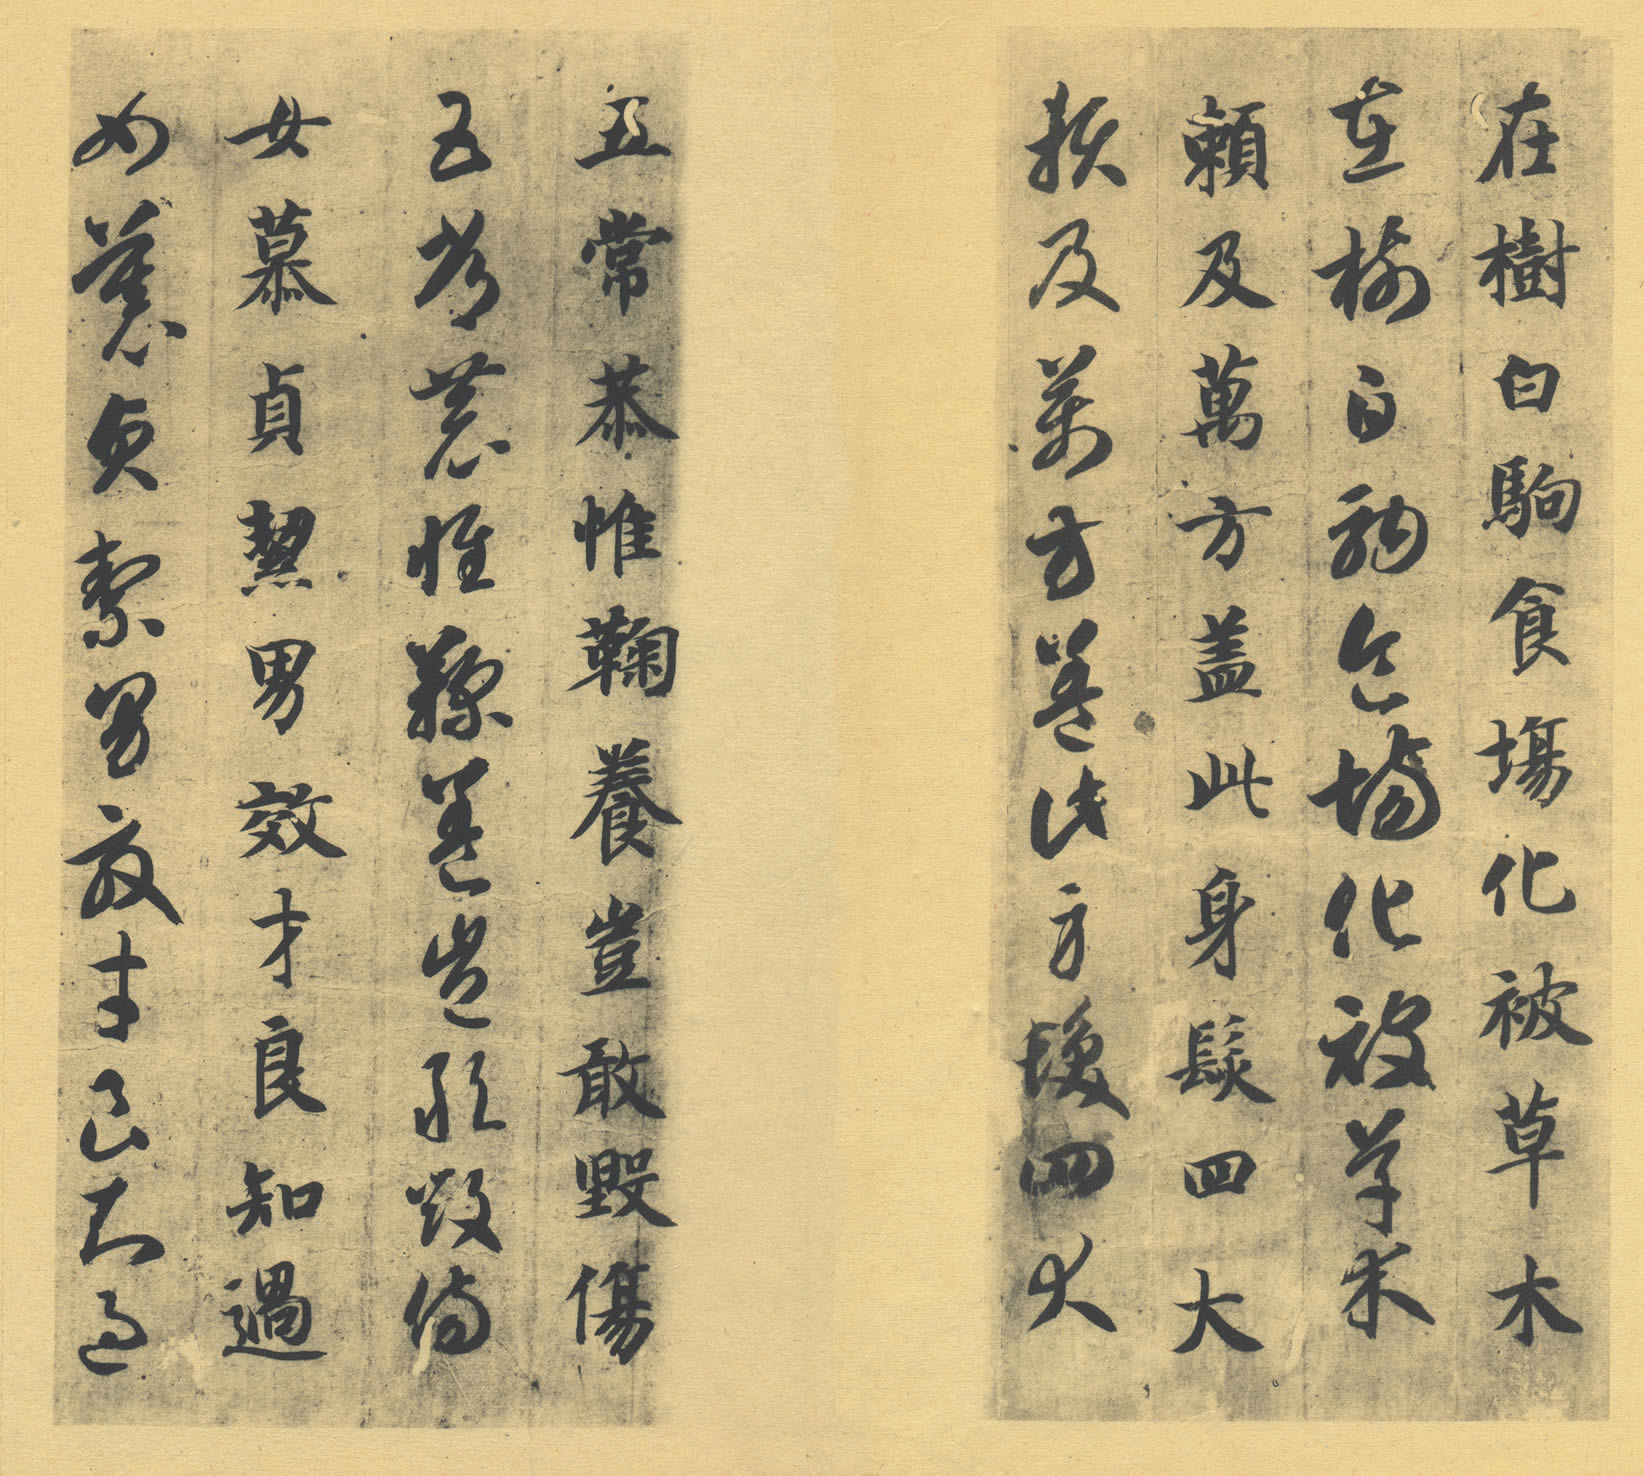 在樹白駒食塲化被草木
在樹白駒食場化被草木
賴及萬方盖此身髮四大
賴及萬方盖此身髮四大
五常恭惟鞠養豈敢毀傷
五常恭惟鞠養豈敢毀傷
女慕貞絜男效才良知過
女慕貞絜男效才良知過